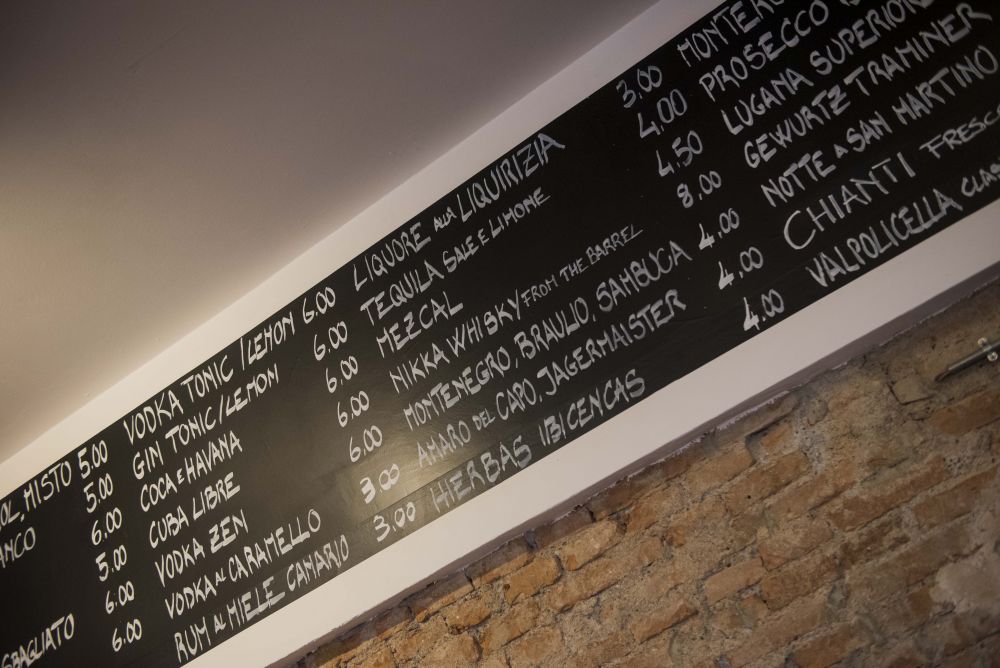 MISTO 5.00
5.00
6.00
5.00
6.00
SBAGLIATO 6.00
VODKA TONIC /LEMON 6.00
GIN TONIC/LEMON 6.00
COCA E HAVANA 6.00
CUBA LIBRE 6.00
VODKA ZEN 6.00
VODKA AL CARAMELLO 3.00
RUM AL MIELE CANARIO 3.00
LIQUORE ALLA LIQUIRIZIA 3.00
TEQUILA SALE E LIMONE 4.00
MEZCAL 4.50
NIKKA WHISKY FROM THE BARREL 8.00
MONTENEGRO, BRAULIO, SAMBUCA 4.00
AMARO DEL CAPO, JAGERMAISTER 4.00
HIERBAS IBICENCAS 4.00
PROSECCO
LUGANA SUPERIOR
GEWURTZ TRAMINER
NOTTE A SAN MARTINO
CHIANTI FRESCO
VALPOLICELLA CLAS